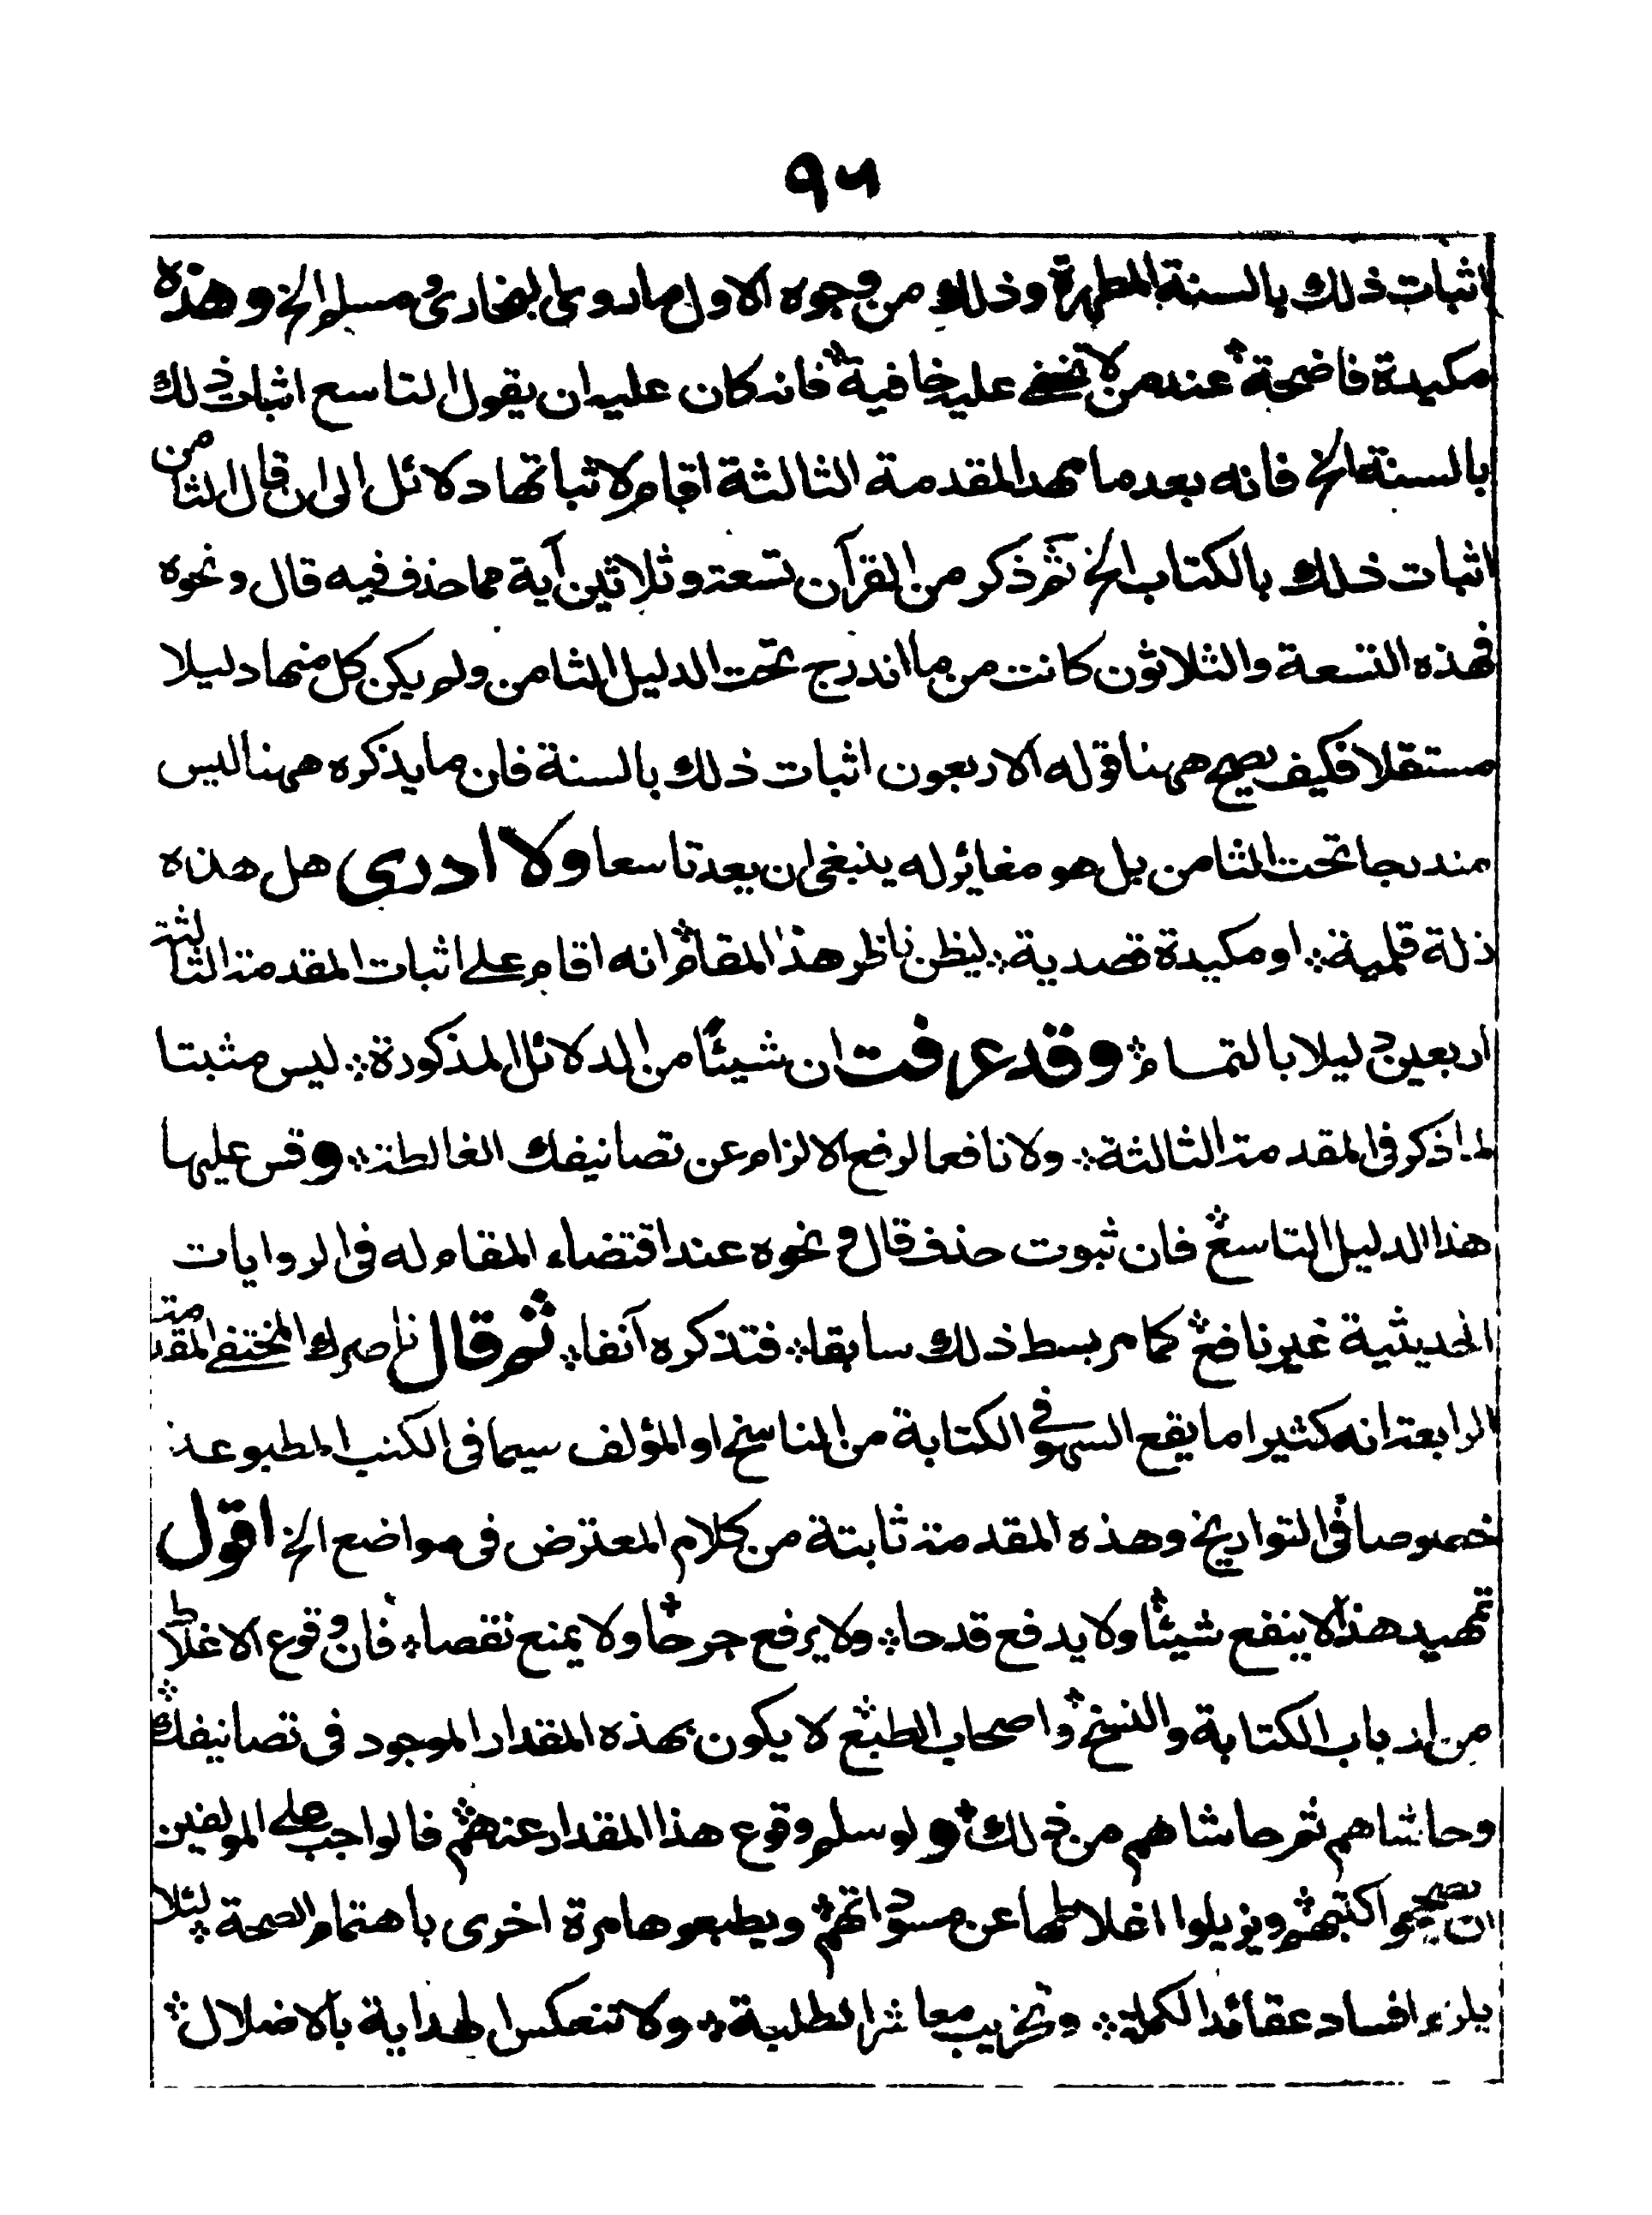 ٩٦
اثبات ذلك بالسنة المطهرة وذلك من وجوه الاول ما روى البخارى ومسلم الخ وهذه
مكيدة فاضحة ؞ عند من لا تخفى عليه خافية ؞ فانه كان عليه ان يقول التاسع اثبات ذلك
بالسنة الخ فانه بعد ما مهد المقدمة الثالثة اقام لاثباتها دلائل الى ان قال الثامن
اثبات ذلك بالكتاب الخ ثم ذكر من القرآن تسعة وثلاثين آية مما حذف فيه قال ونحوه
فهذه التسعة والثلاثون كانت من ما اندرج تحت الدليل الثامن ولم يكن كل منها دليلا
مستقلا فكيف يصح ههنا قوله الاربعون اثبات ذلك بالسنة فان ما يذكره ههنا ليس
مندرجا تحت الثامن بل هو مغائر له ينبغى ان يعد تاسعا ولا ادرى هل هذه
ذلة قلمية ؞ او مكيدة قصدية ؞ ليظن ناظر هذا المقام ؞ انه اقام على اثبات المقدمة الثالثة
اربعين دليلا بالتمام ؞ وقد عرفت ان شيئا من الدلائل المذكورة ؞ ليس مثبتا
لما ذكر فى المقدمة الثالثة ؞ ولا نافعا لرفع الالزام عن تصانيفك الغالطة ؞ وقس عليها
هذا الدليل التاسع ؞ فان ثبوت حذف قال ونحوه عند اقتضاء المقام له فى الروايات
الحديثية غير نافع ؞ كما مر بسط ذلك سابقا ؞ فتذكره آنفا ؞ ثم قال ناصرك المختفى المقدمة
الرابعة انه كثيرا ما يقع السهو فى الكتابة من الناسخ او المؤلف سيما فى الكتب المطبوعة
خصوصا فى التواريخ وهذه المقدمة ثابتة من كلام المعترض فى مواضع الخ اقول
تمهيد هذا لا ينفع شيئا ؞ ولا يدفع قدحا ؞ ولا يرفع جرحا ؞ ولا يمنع نقصا ؞ فان وقوع الاغلاط
من ارباب الكتابة والنسخ ؞ واصحاب الطبع ؞ لا يكون بهذه المقدار الموجود فى تصانيفك ؞
وحاشاهم ثم حاشاهم من ذلك ؞ ولو سلم وقوع هذا المقدار عنهم ؞ فالواجب على المولفين
ان يصححوا كتبهم ؞ ويزيلوا اغلاطها عن مسوداتهم ؞ ويطبعوها مرة اخرى باهتمام الصحة ؞ لئلا
يلزم افساد عقائد الكملة ؞ وتخريب معاشر الطلبة ؞ ولا تنعكس الهداية بالاضلال ؞